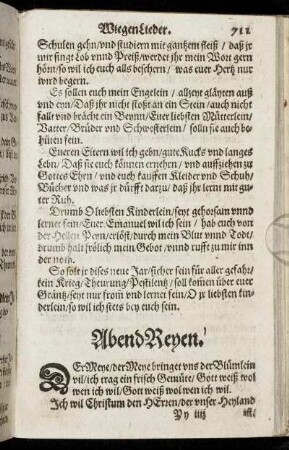 WiegenLieder. 711
Schulen gehn/vnd studiern mit gantzem fleiß / daß jr
mir singt Lob vnnd Preiß/werdet jhr mein Wort gern
hörn/so wil ich euch alls beschern / was euer Hertz nur
wird begern.
Es sollen euch mein Engelein / allzeyt glayten auß
vnd eyn/Daß jhr nicht stoßt an ein Stein/auch nicht
fallt vnd brächt ein Beynn/Euer liebsten Mütterlein/
Vatter/Brüder vnd Schwesterlein / solln sie auch be-
hüten fein.
Eueren Eltern wil ich gebn/gute Kucks vnd langes
Lebn/ Daß sie euch können ernehrn / vnd auffziehen zu
Gottes Ehrn/vnd euch kauffen Kleider vnd Schuh/
Bücher vnd was jr dürfft darzu/ daß jhr lernt mit gu-
ter Ruh.
Drumb O liebsten Kinderlein/seyt gehorsam vnnd
lernet fein/Euer Emanuel wil ich sein / hab euch von
der Hellen Peyn/erlöst/durch mein Blut vnnd Todt/
drumb halt frölich mein Gebot/vnnd rufft zu mir inn
der noth.
So solt jr dises neue Jar/sicher sein für aller gefahr/
kein Krieg/Theurung/Pestilentz/ soll komen über euer
Gräntz/seyt nur from vnd lernet fein/O jr liebsten kin-
derlein/so wil ich stets bey euch sein.
AbendReyen.
DEr Meye/der Meye bringet vns der Blümlein
vil/ich trag ein frisch Gemüte/ Gott weiß wol
wen ich wil/Gott weiß wol wen ich wil.
Ich wil Christum den HErren/der vnser Heyland
Yy iiij ist/